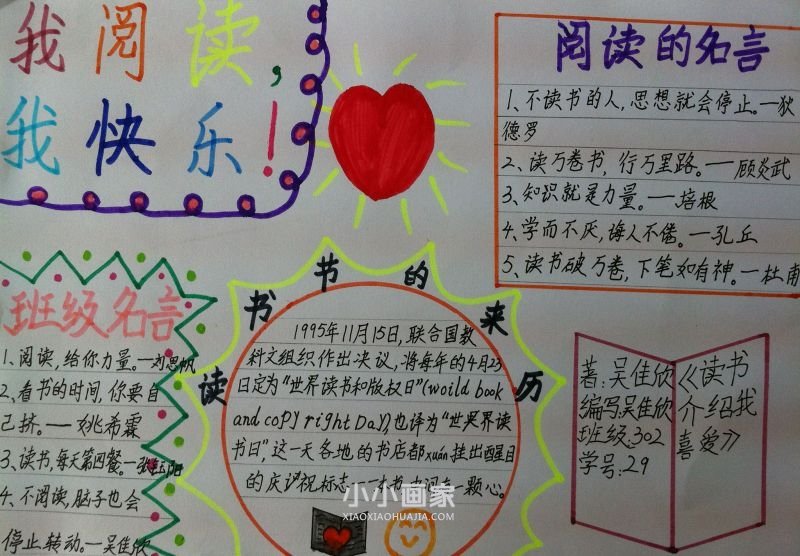 我阅读,
我快乐!
阅读的名言
1、不读书的人,思想就会停止。—狄
德罗
2、读万卷书,行万里路。—顾炎武
3、知识就是力量。—培根
4、学而不厌,诲人不倦。—孔丘
5、读书破万卷,下笔如有神。—杜甫
班级名言
1、阅读,给你力量。—刘思帆
2、看书的时间,你要自
己挤。—姚希霖
3、读书,每天第四餐。—张
4、不阅读,脑子也会
停止转动。—吴佳欣
读书节的来历
1995年11月15日,联合国教
科文组织作出决议,将每年的4月23
日定为“世界读书和版权日”(woild book
and copy right Day),也译为“世界界读
书日”,这一天各地的书店都xuán挂出醒目
的庆祝标志:一本书中间有一颗心。
著:吴佳欣
编写:吴佳欣
班级:302
学号:29
《读书
介绍我
喜爱》
小小画家
XIAOXIAOHUAJIA.COM